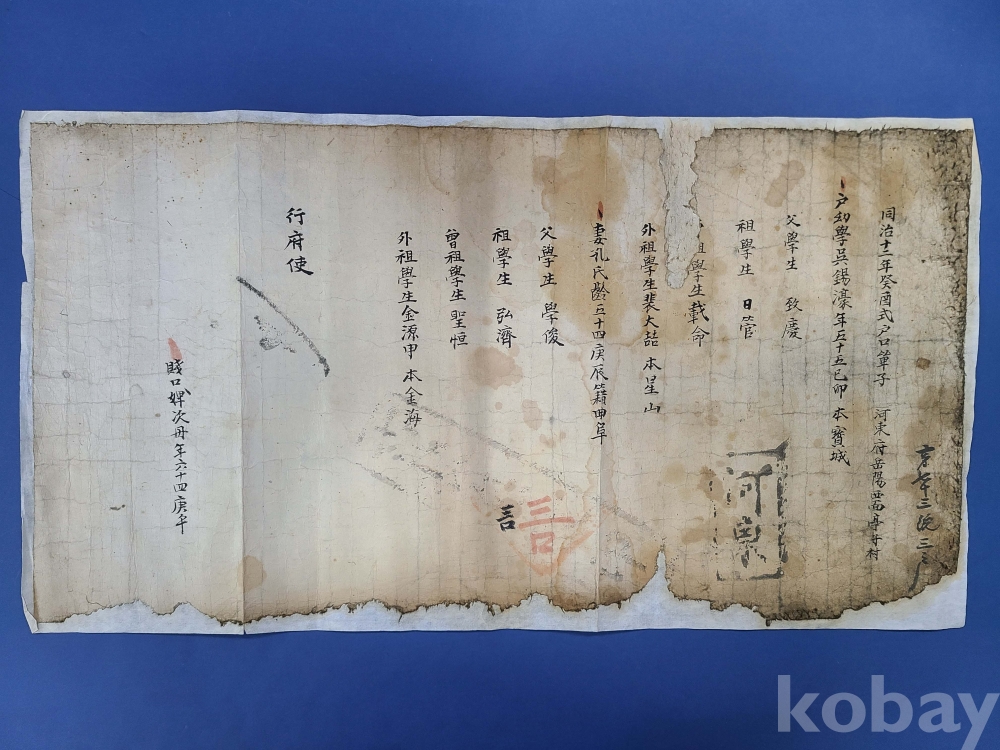 同治十二年癸酉式戶口單子 河東府岳陽面亭子村
戶幼學吳錫濠年五十五己卯 本寶城
父學生 致慶
祖學生 日管
祖學生載命
外祖學生裴大喆 本星山
妻孔氏齡五十四庚辰籍曲阜
父學生 學俊
祖學生 弘濟
曾祖學生聖恒
外祖學生金源甲 本金海
行府使
賤口婢次丹年六十四庚午
河東
kobay